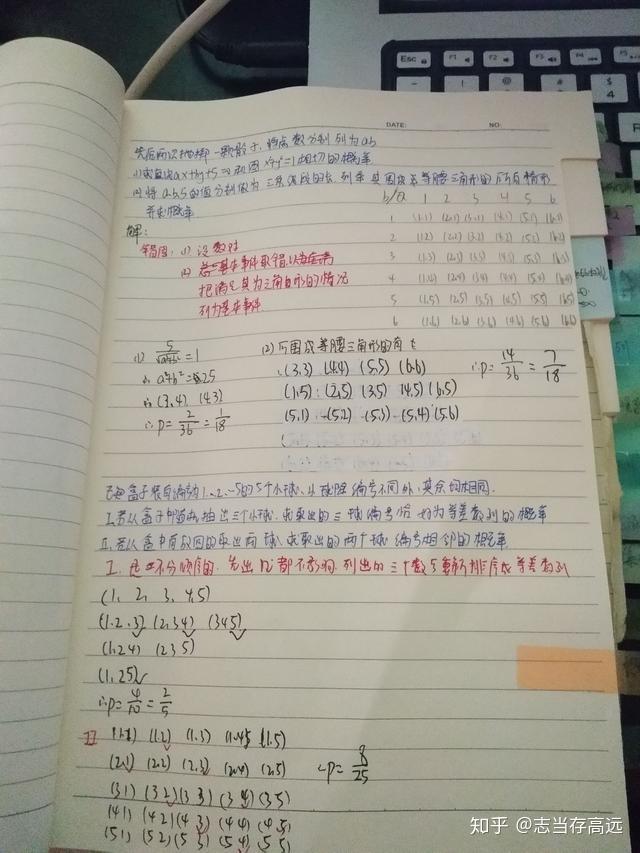 Esc F1 F2 F3 F4 F5
! @ # $ 4
DATE: NO:
先后两次抛掷一颗骰子,将点数分别列为a.b
(1)求直线ax+by+5=0和圆x²+y²=1相切的概率
(2)将a,b,5的值分别做为三条线段的长,列举其围成等腰三角形的所有情形
并求概率
解:
错因:(1)没想对
(2)总基本事件取错,以为在满
把满足其为三角形的情况
列为基本事件
b/a 1 2 3 4 5 6
1 (1.1) (2.1) (3.1) (4.1) (5.1) (6.1)
2 (1.2) (2.2) (3.2) (4.2) (5.2) (6.2)
3 (1.3) (2.3) (3.3) (4.3) (5.3) (6.3)
4 (1.4) (2.4) (3.4) (4.4) (5.4) (6.4)
5 (1.5) (2.5) (3.5) (4.5) (5.5) (6.5)
6 (1.6) (2.6) (3.6) (4.6) (5.6) (6.6)
(1) 5/√a²+b² =1
∴a²+b²=25
∴(3,4) (4.3)
∴p=2/36=1/18
(2)可围成等腰三角形的有
(3,3) (4.4) (5,5) (6.6)
(1,5) (2,5) (3.5) (4.5) (6,5)
(5,1) (5.2) (5.3) (5.4) (5.6)
(
∴p=14/36=7/18
已知盒子装有编号1、2…5的5个小球,小球除编号不同外,其余均相同.
I.若从盒子中随机抽出三个小球,求取出的三球编号恰好为等差数列的概率
II.若从盒中有放回的取出两球,求取出的两个球编号相邻的概率
I.是不分顺序的,先出后都不影响,列出的三个数与重新排序成等差数列
(1, 2, 3, 4,5)
(1.2.3) (2,3,4) (345)
(1.24) (235)
(1,25)
∴p=4/10=2/5
II (1.1) (1.2) (1.3) (1.4) (1.5)
(2.1) (2.2) (2.3) (2.4) (2.5)
(31) (32) (33) (34) (35)
(41) (42) (43) (44) (45)
(51) (52) (53) (54) (55)
∴p=8/25
知乎 @志当存高远